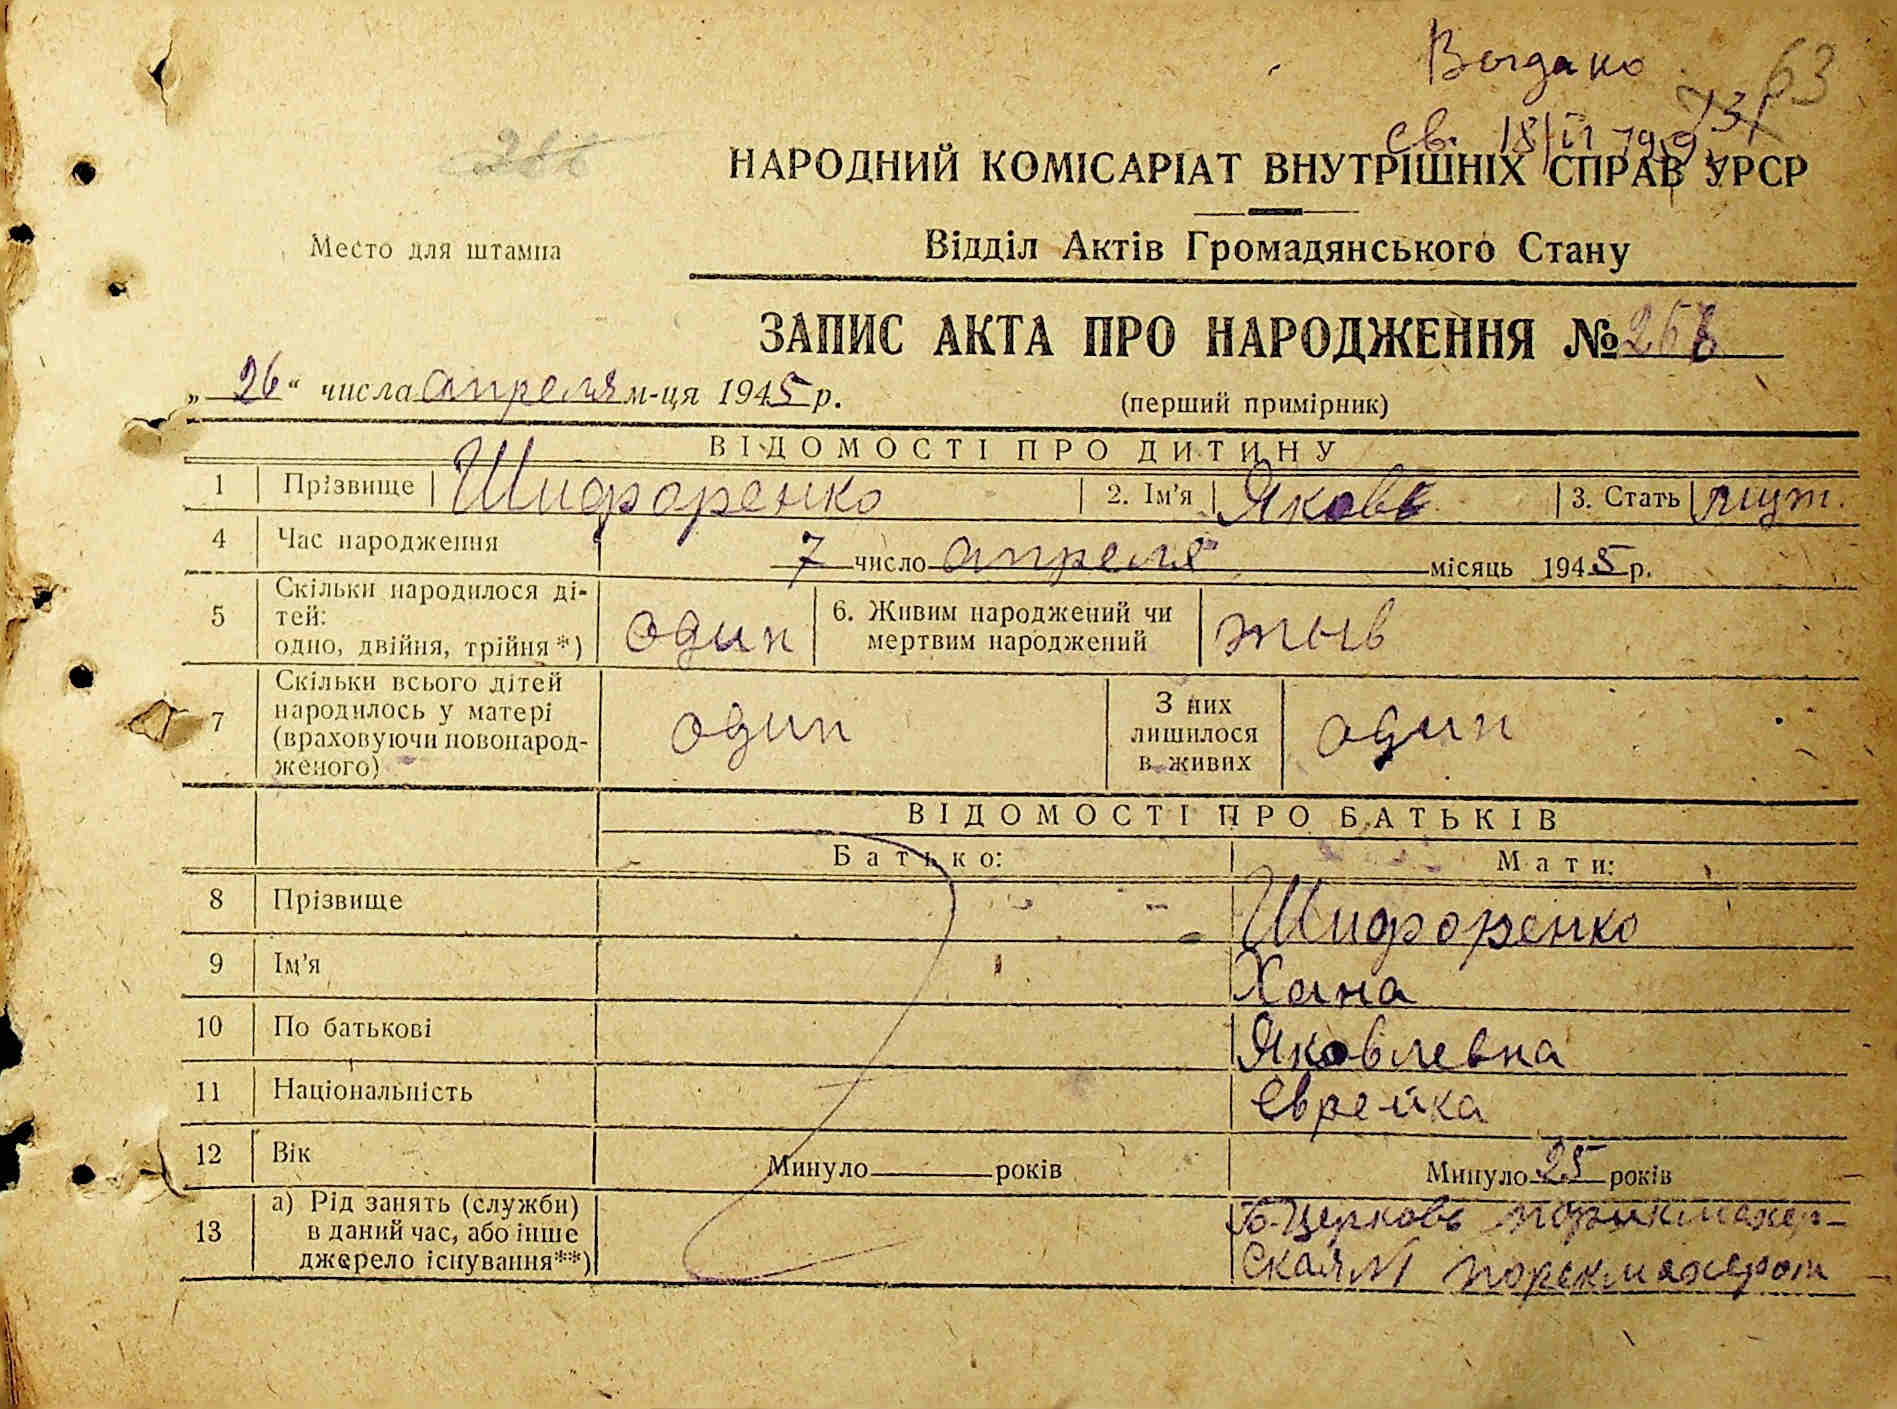 Выдано
63
св. 18/II
НАРОДНИЙ КОМІСАРІАТ ВНУТРІШНІХ СПРАВ УРСР
Место для штампа
Відділ Актів Громадянського Стану
ЗАПИС АКТА ПРО НАРОДЖЕННЯ №
„26“ числа апреля м-ця 1945 р.
(перший примірник)
ВІДОМОСТІ ПРО ДИТИНУ
1 Прізвище Шифоренко 2. Ім'я Яковь 3. Стать муж.
4 Час народження 7 число апреля місяць 1945 р.
5 Скільки народилося ді-
тей:
одно, двійня, трійня *) один 6. Живим народжений чи
мертвим народжений жыв
7 Скільки всього дітей
народилось у матері
(враховуючи новонарод-
женого) один З них
лишилося
в живих один
ВІДОМОСТІ ПРО БАТЬКІВ
Батько: Мати:
8 Прізвище Шифоренко
9 Ім'я Хана
10 По батькові Яковлевна
11 Національність еврейка
12 Вік Минуло років Минуло 25 років
13 а) Рід занять (служби)
в даний час, або інше
джерело існування**) Б-Церковь парикмахер-
ская №1 порекмахером